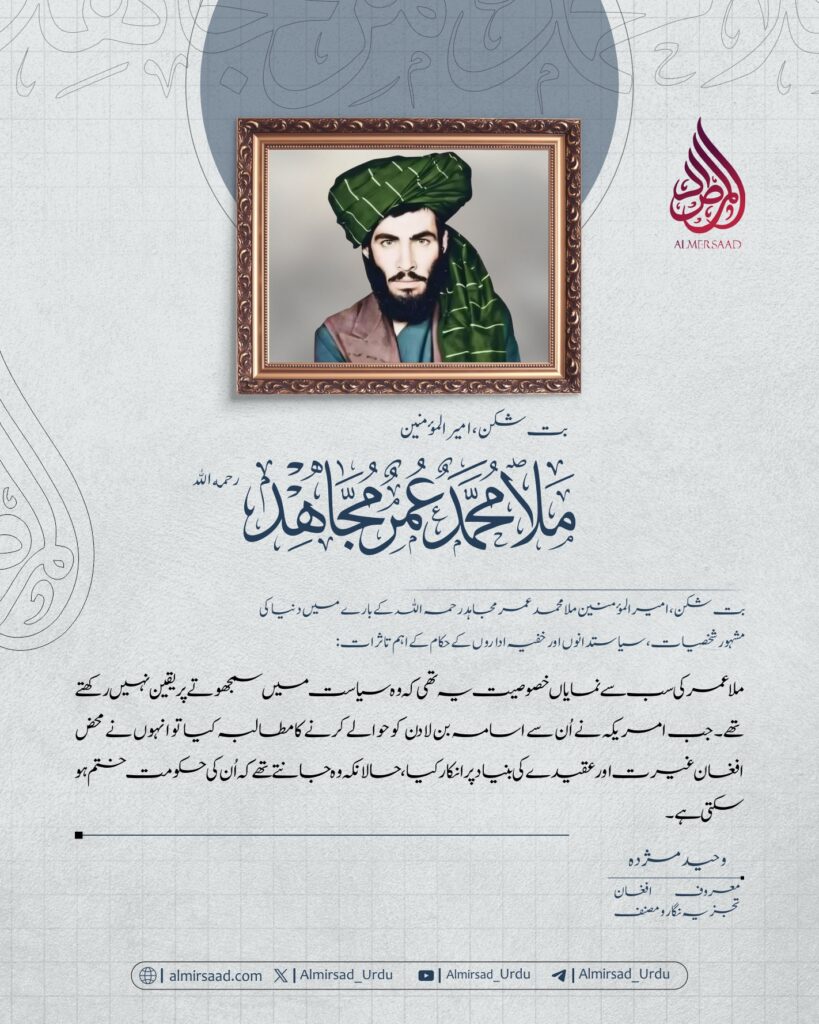 المرصاد
ALMERSAAD
بت شکن، امیر المؤمنین
ملا محمد عمر مجاهد رحمه الله
بت شکن، امیر المؤمنین ملا محمد عمر مجاہد رحمہ اللہ کے بارے میں دنیا کی
مشہور شخصیات، سیاستدانوں اور خفیہ اداروں کے حکام کے اہم تاثرات:
ملا عمر کی سب سے نمایاں خصوصیت یہ تھی کہ وہ سیاست میں سمجھوتے پر یقین نہیں رکھتے
تھے۔ جب امریکہ نے اُن سے اسامہ بن لادن کو حوالے کرنے کا مطالبہ کیا تو انہوں نے محض
افغان غیرت اور عقیدے کی بنیاد پر انکار کیا، حالانکہ وہ جانتے تھے کہ اُن کی حکومت ختم ہو
سکتی ہے۔
وحید مژدہ
معروف افغان
تجزیہ نگار و مصنف
almirsaad.com | Almirsad_Urdu | Almirsad_Urdu | Almirsad_Urdu